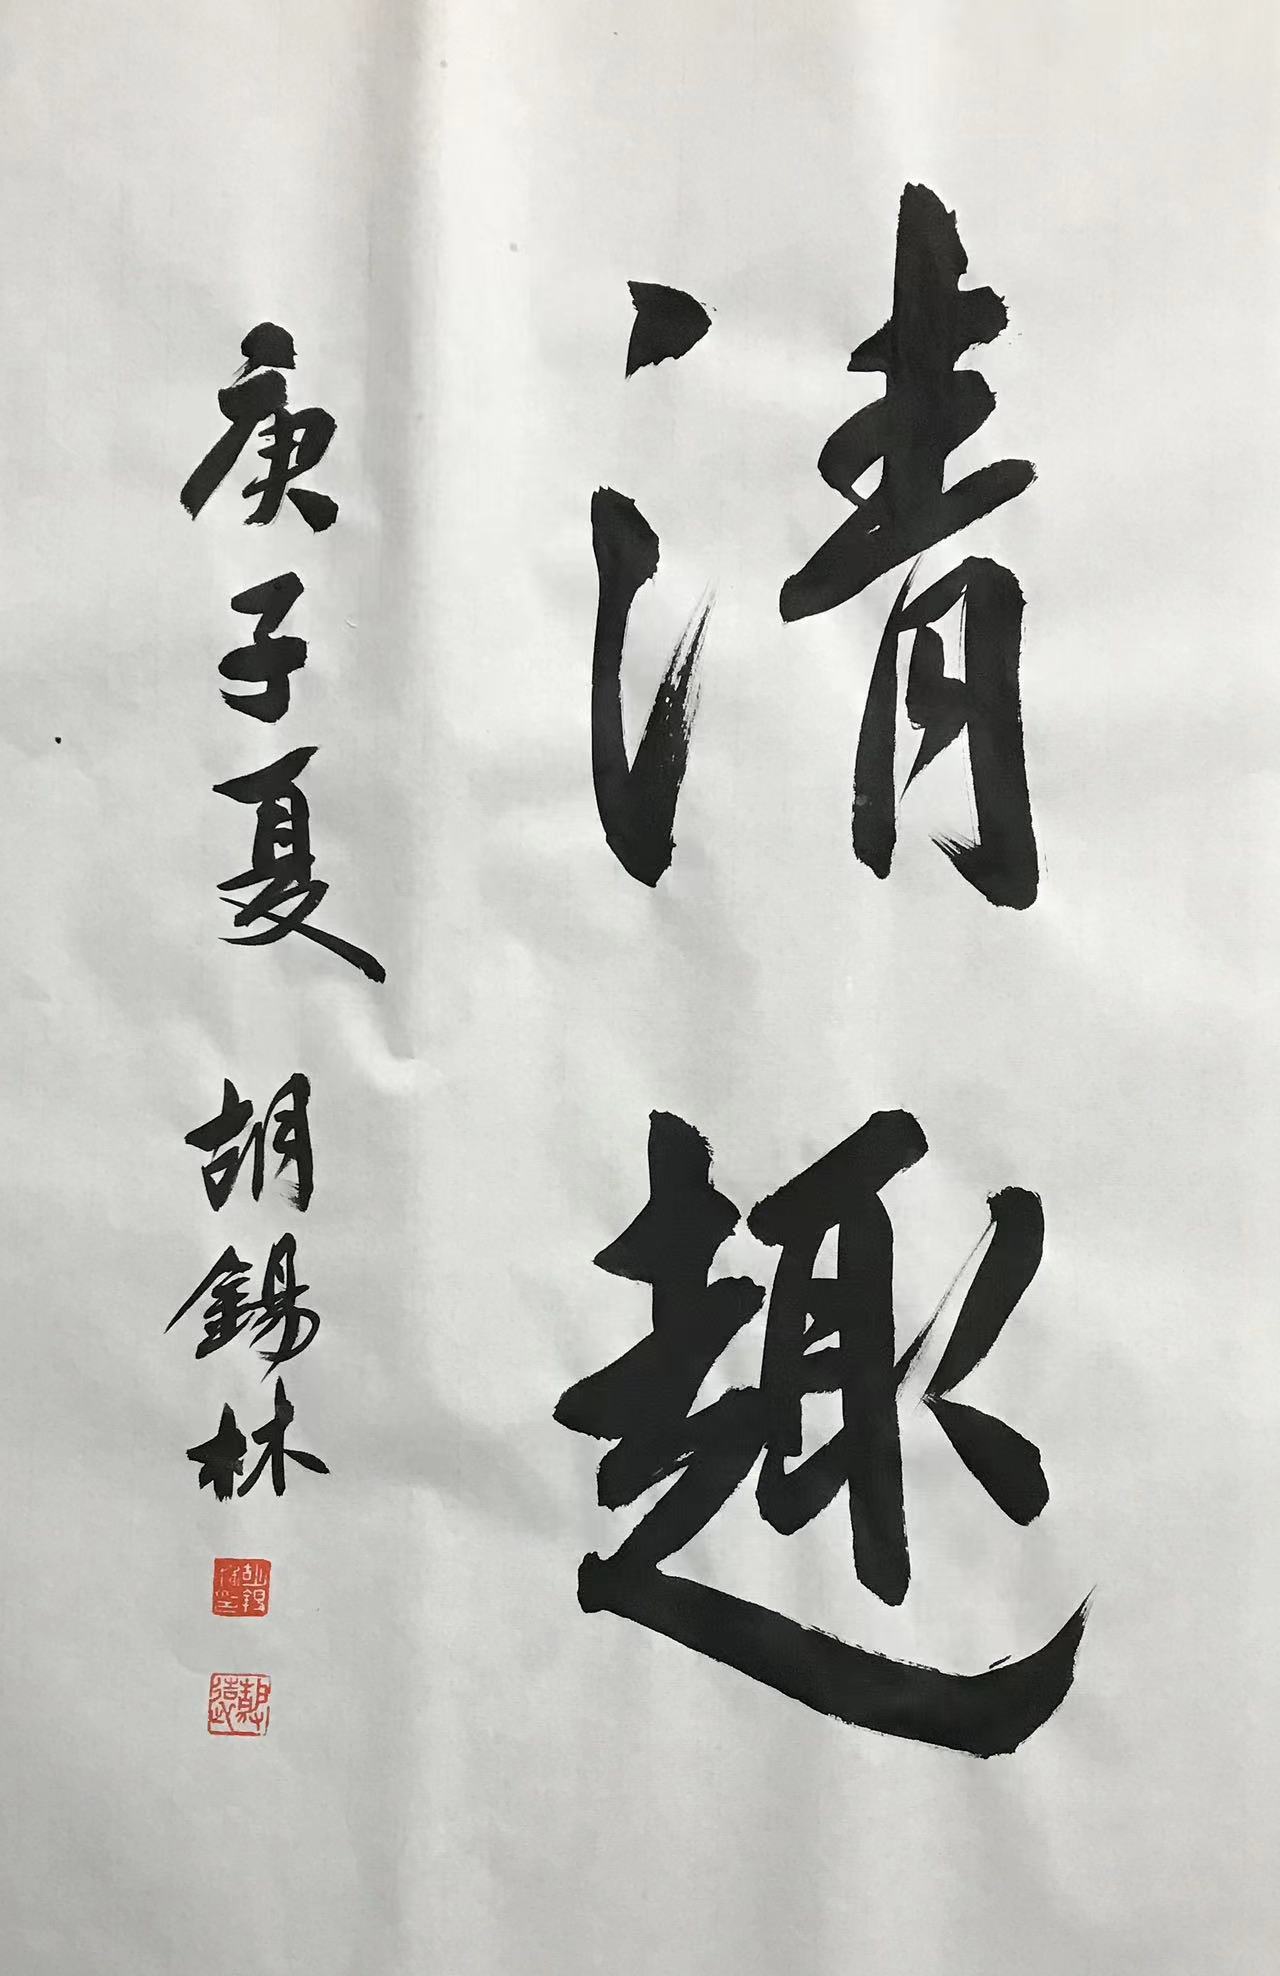 清趣
庚子夏 胡錫林